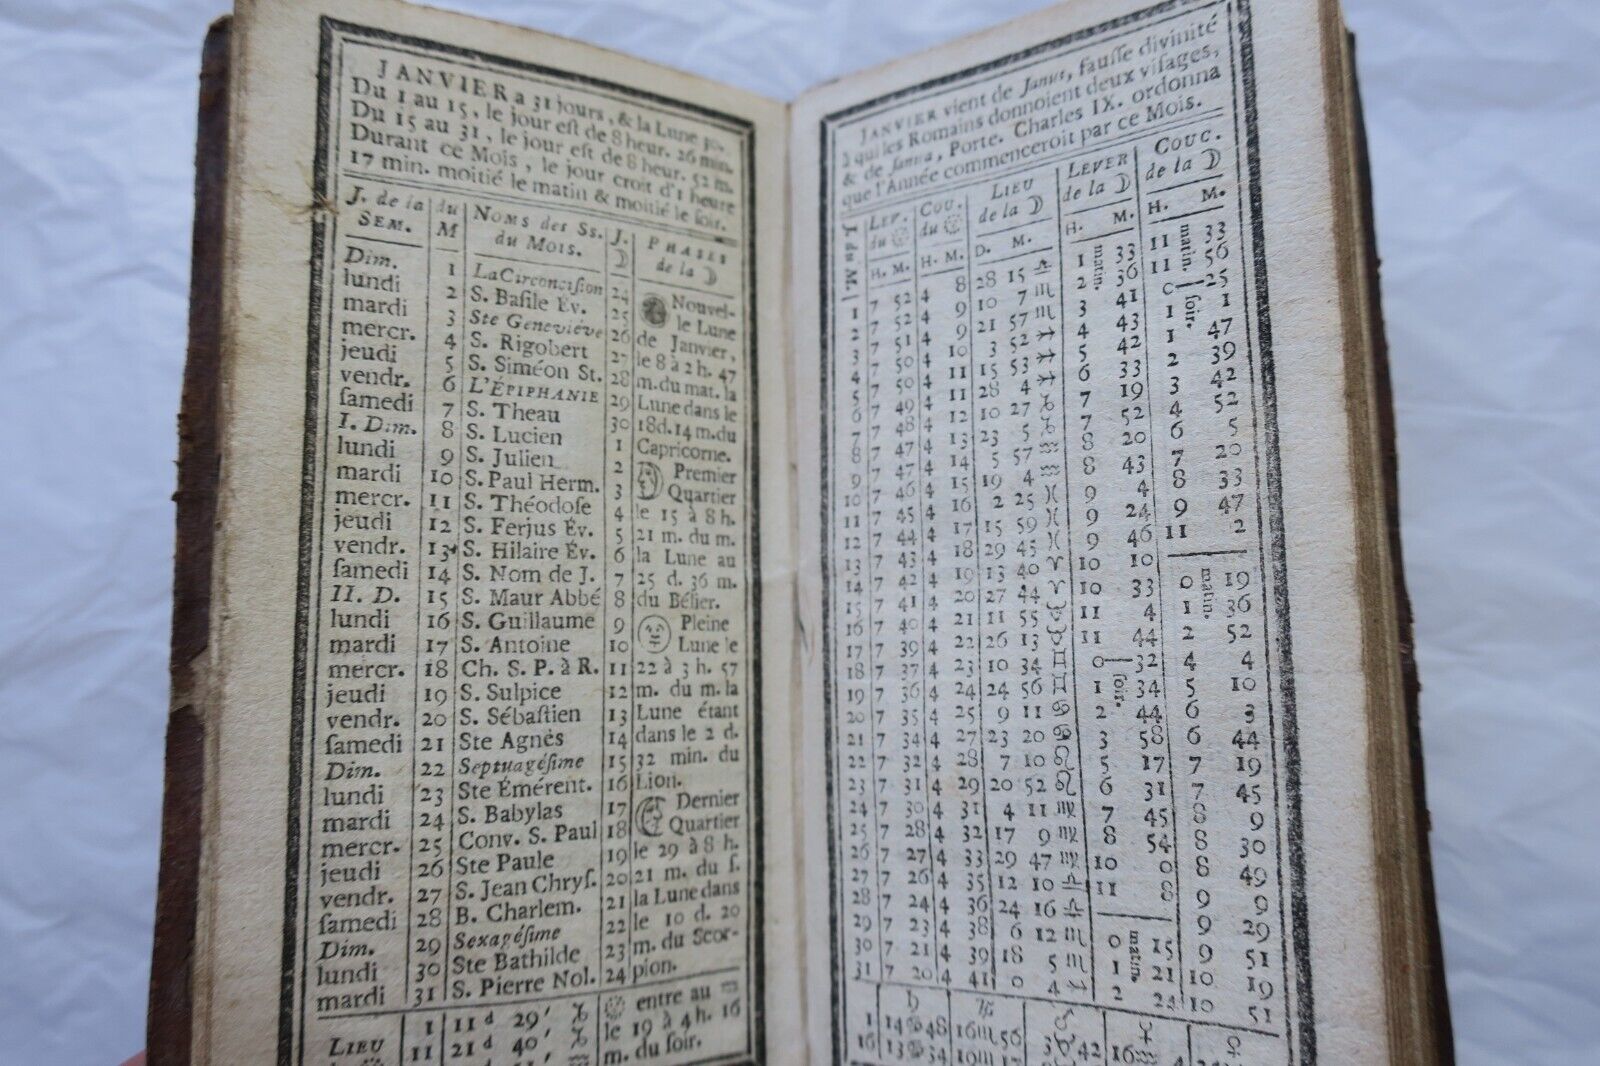 JANVIER a 31 jours, & la Lune 30.
Du 1 au 15, le jour eſt de 8 heur. 26 min.
Du 15 au 31, le jour eſt de 8 heur. 52 m.
Durant ce Mois, le jour croit d'1 heure
17 min. moitié le matin & moitié le ſoir.
J. de la SEM. du M NOMS des SS. du MOIS. J. ☽ PHASES de la ☽
Dim. 1 La Circonciſion 24
lundi 2 S. Baſile Év. 25 Nouvel-
mardi 3 Ste Geneviéve 26 le Lune
mercr. 4 S. Rigobert 27 de Janvier,
jeudi 5 S. Siméon St. 28 le 8 à 2 h. 47
vendr. 6 L'ÉPIPHANIE 29 m. du mat. la
ſamedi 7 S. Theau 30 Lune dans le
I. Dim. 8 S. Lucien 1 18 d. 14 m. du
lundi 9 S. Julien 2 Capricorne.
mardi 10 S. Paul Herm. 3 Premier
mercr. 11 S. Théodoſe 4 Quartier
jeudi 12 S. Ferjus Év. 5 le 15 à 8 h.
vendr. 13 S. Hilaire Év. 6 21 m. du m.
ſamedi 14 S. Nom de J. 7 la Lune au
II. D. 15 S. Maur Abbé 8 25 d. 36 m.
lundi 16 S. Guillaume 9 du Bélier.
mardi 17 S. Antoine 10 Pleine
mercr. 18 Ch. S. P. à R. 11 Lune le
jeudi 19 S. Sulpice 12 22 à 3 h. 57
vendr. 20 S. Sébaſtien 13 m. du m. la
ſamedi 21 Ste Agnès 14 Lune étant
Dim. 22 Septuagéſime 15 dans le 2 d.
lundi 23 Ste Émérent. 16 32 min. du
mardi 24 S. Babylas 17 Lion.
mercr. 25 Conv. S. Paul 18 Dernier
jeudi 26 Ste Paule 19 Quartier
vendr. 27 S. Jean Chryſ. 20 le 29 à 8 h.
ſamedi 28 B. Charlem. 21 21 m. du ſ.
Dim. 29 Sexagéſime 22 la Lune dans
lundi 30 Ste Bathilde 23 le 10 d. 20
mardi 31 S. Pierre Nol. 24 m. du Scor-
pion.
LIEU 1 11 d 29' ♑ entre au ♒
11 21 d 40' ♑ le 19 à 4 h. 16
m. du ſoir.
JANVIER vient de Janus, fauſſe divinité
à qui les Romains donnoient deux viſages,
& de Janua, Porte. Charles IX. ordonna
que l'Année commenceroit par ce Mois.
J. du M. LEV. du COU. du LIEU de la ☽ LEVER de la ☽ COUC. de la ☽
H. M. H. M. D. M. H. M. H. M.
1 7 52 4 8 28 15 ♎ 1 matin. 33 11 matin. 33
2 7 52 4 9 10 7 ♏ 2 36 11 56
3 7 51 4 9 21 57 ♏ 3 41 0 ſoir. 25
4 7 50 4 10 3 52 ♐ 4 43 1 1
5 7 50 4 11 15 53 ♐ 5 42 1 47
6 7 49 4 11 28 4 ♐ 6 33 2 39
7 7 48 4 12 10 27 ♑ 7 19 3 42
8 7 47 4 13 23 5 ♑ 7 52 4 52
9 7 47 4 14 5 57 ♒ 8 20 6 5
10 7 46 4 15 19 4 ♒ 8 43 7 20
11 7 45 4 16 2 25 ♓ 9 4 8 33
12 7 44 4 17 15 59 ♓ 9 24 9 47
13 7 43 4 18 29 45 ♓ 9 46 11 2
14 7 42 4 19 13 40 ♈ 10 10
15 7 41 4 20 27 44 ♈ 10 33 0 matin. 19
16 7 40 4 21 11 55 ♉ 11 4 1 36
17 7 39 4 22 26 13 ♉ 11 44 2 52
18 7 37 4 23 10 34 ♊ 0 ſoir. 32 4 4
19 7 36 4 24 24 56 ♊ 1 34 5 10
20 7 35 4 25 9 11 ♋ 2 44 6 3
21 7 34 4 27 23 20 ♋ 3 58 6 44
22 7 32 4 28 7 10 ♌ 5 17 7 19
23 7 31 4 29 20 52 ♌ 6 31 7 45
24 7 30 4 31 4 11 ♍ 7 45 8 9
25 7 28 4 32 17 9 ♍ 8 54 8 30
26 7 27 4 33 29 47 ♍ 10 0 8 49
27 7 26 4 35 12 10 ♎ 11 8 9 9
28 7 24 4 36 24 16 ♎ 9 29
29 7 23 4 38 6 12 ♏ 0 matin. 15 9 51
30 7 21 4 39 18 5 ♏ 1 21 10 19
31 7 20 4 41 0 4 ♐ 2 24 10 51
♄ ♃ ♂ ♀ ☿
1 14 ♋ 48 16 ♏ 56 3 ♉ 42 16 ♒ 4
16 13 ♋ 34 19 ♏